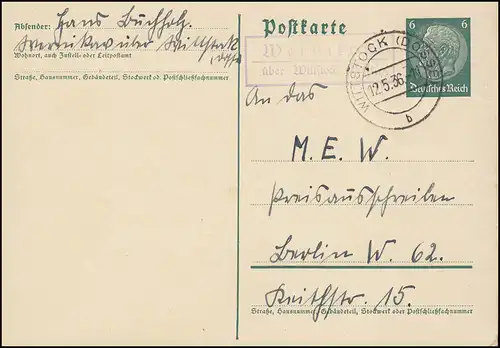 Absender: Hans Buchholz.
Wernikow über Wittstock
(Dosse)
Wohnort, auch Zustell- oder Leitpostamt
Straße, Hausnummer, Gebäudeteil, Stockwerk od. Postschließfachnummer
Postkarte
6 6
Deutsches Reich
Wernikow
über Wittstock
WITTSTOCK (DOSSE)
12.5.36
b
An das
M. E. W.
Preisausschreiben
Berlin W. 62.
Keithstr. 15.
Straße, Hausnummer, Gebäudeteil, Stockwerk oder Postschließfachnummer